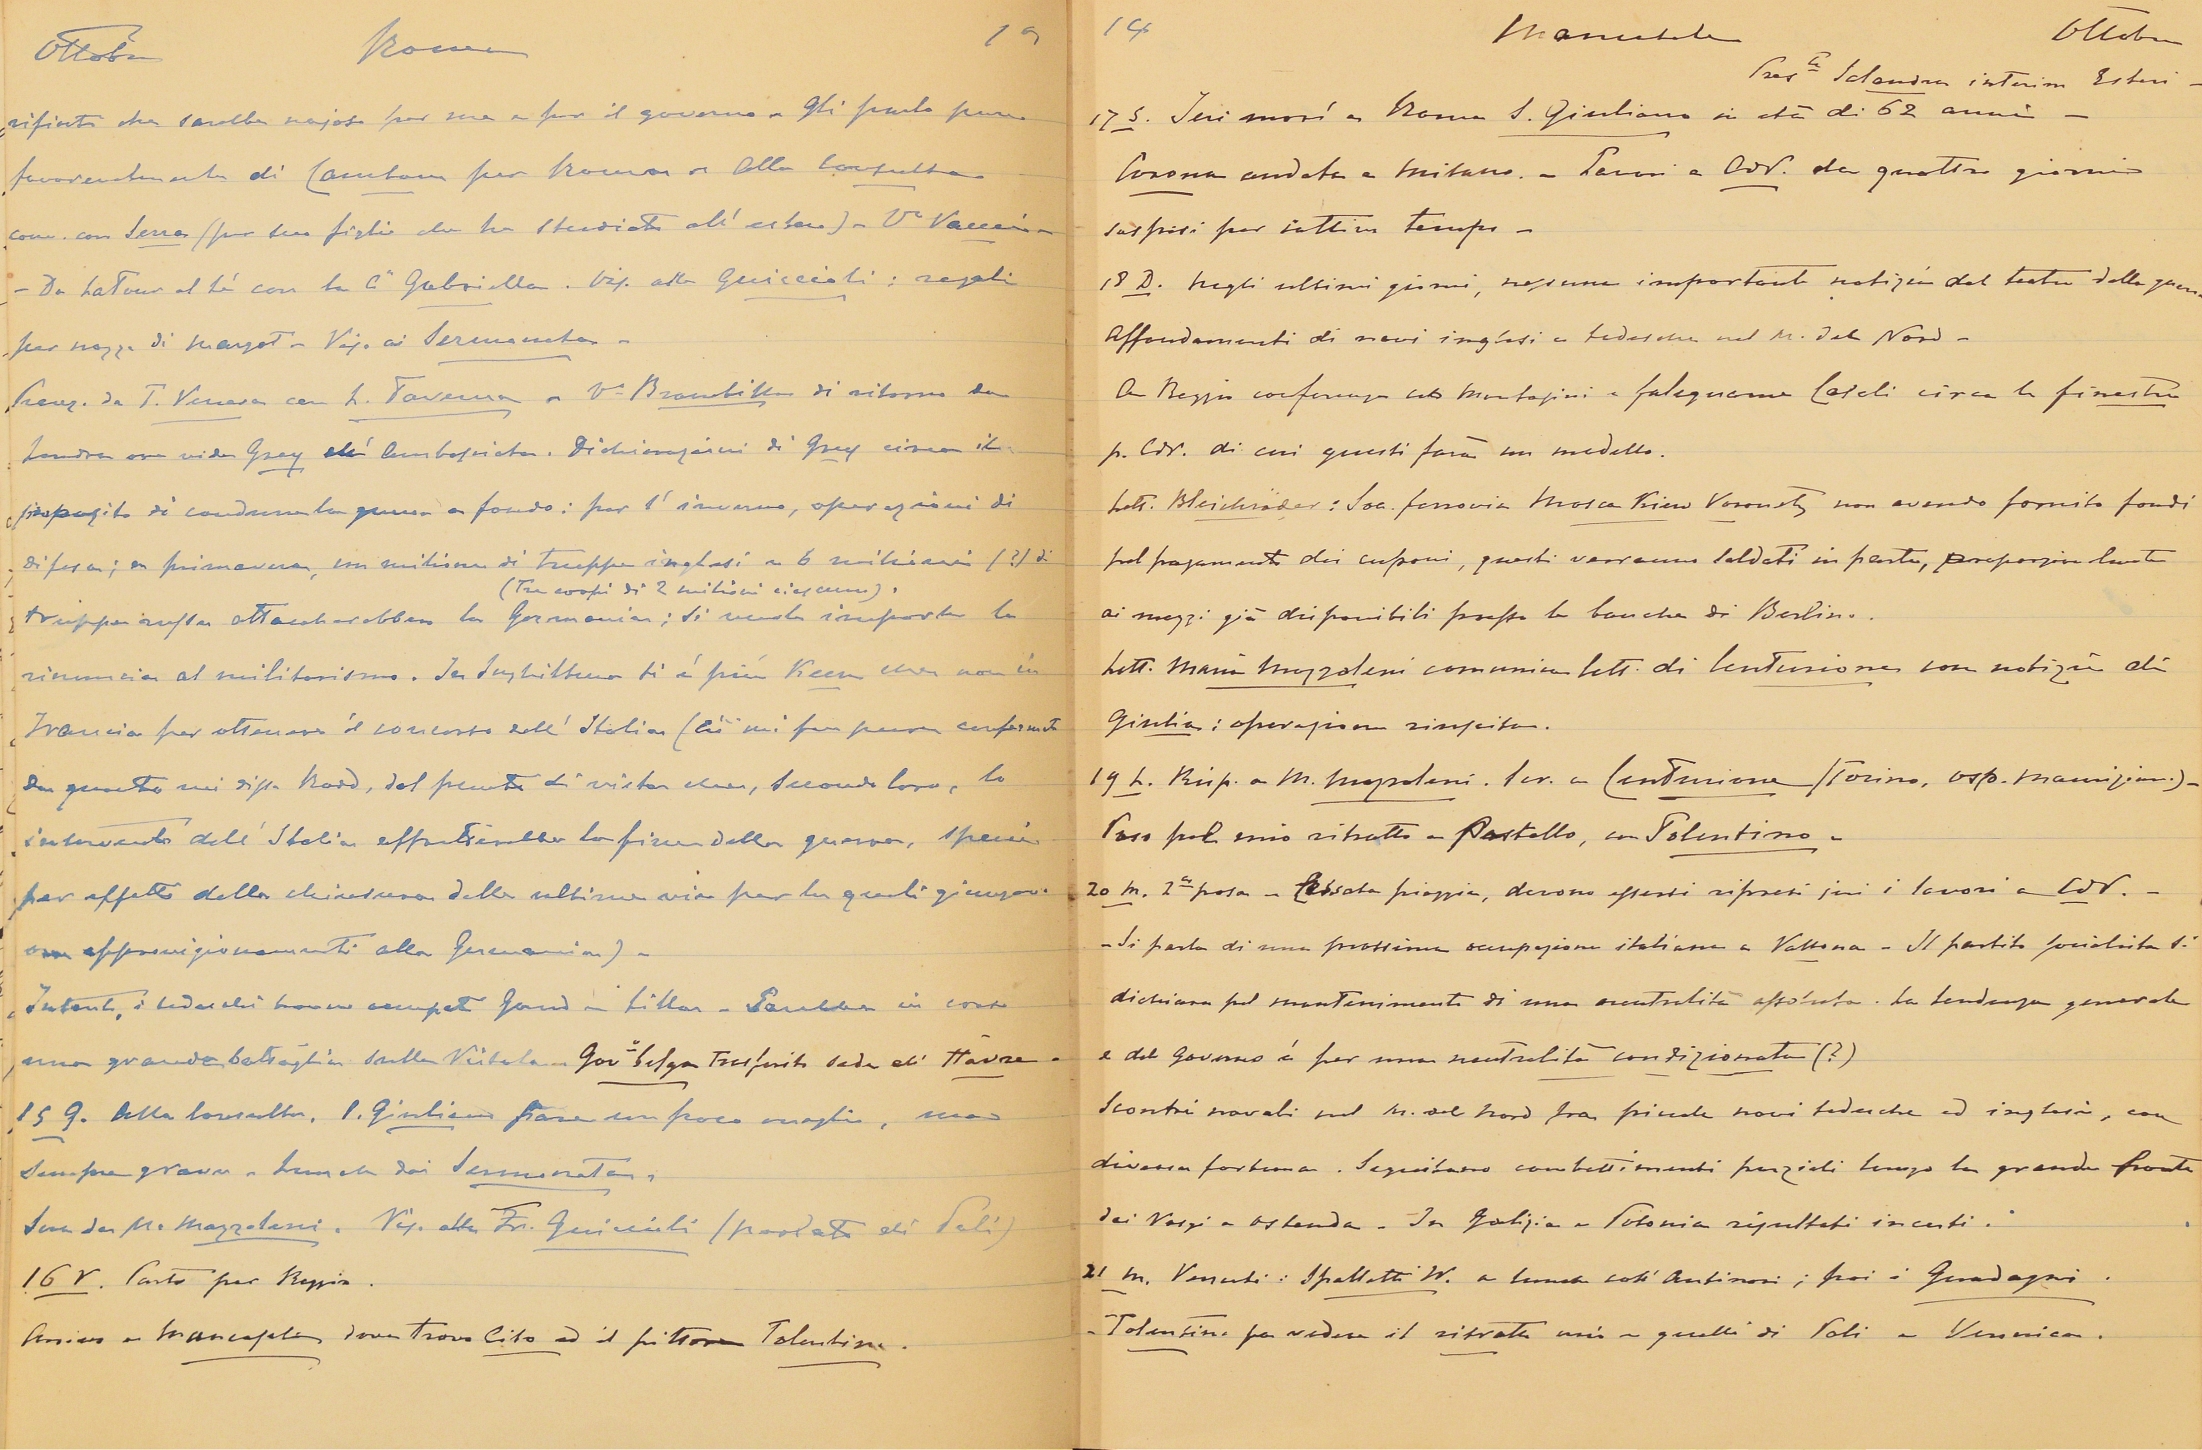 Ottobre Roma 19
rifiuto che sarebbe nojoso per me e per il governo - Gli parlo pure
favorevolmente di Cambon per Roma - Alla Consulta
conv. con Serra (per suo figlio che ha studiato all'estero) - Va Vaccari -
- Da LaTour al té con la Ca Gabriella. Vis. alla Guiccioli: regali
per nozze di Margot - Vis. ai Sermoneta -
Pranz. da T. Venosa con L. Taverna - Va Brambilla di ritorno da
Londra ove vide Grey all'Ambasciata. Dichiarazioni di Grey circa il
proposito di condurre la guerra a fondo: per l'inverno, operazioni di
difesa; in primavera, un milione di truppe inglesi e 6 milioni (?) di
(Tre corpi di 2 milioni ciascuno).
truppe russe attaccherebbero la Germania; si vuole imporre la
rinuncia al militarismo. In Inghilterra si è più Keen che non in
Francia per ottenere il concorso dell'Italia (Ciò mi fu pure confermato
da quanto mi disse Rodd, dal punto di vista che, secondo loro, lo
intervento dell'Italia affretterebbe la fine della guerra, specie
per effetto della chiusura della ultima via per la quale giungono
approvigionamenti alla Germania) -
Intanto, i tedeschi hanno occupato Gand e Lilla - Sarebbe in corso
una grande battaglia sulla Vistola - Govo belga trasferito sede all'Havre -
15 G. Alla Consulta. S. Giuliano stava un poco meglio, ma
sempre grave - Lunch dai Sermoneta.
Sera da M. Mazzoleni. Vis. alla Fr. Guiccioli (parlato di Poli)
16 V. Parto per Reggio.
Arrivo a Mancasale dove trovo Cito ed il pittore Tolentino.
14 Mancasale Ottobre
Pres. Salandra interim Esteri -
17 S. Ieri morì a Roma S. Giuliano in età di 62 anni -
Corona andata a Milano. - Lavori a CdV. da quattro giorni
sospesi per cattivo tempo -
18 D. Negli ultimi giorni, nessuna importante notizia dal teatro della guerra
Affondamenti di navi inglesi e tedesche nel M. del Nord -
A Reggio conferenza con Montagini e falegname Casoli circa le finestre
p. CdV. di cui questi farà un modello.
Lett. Bleichröder: Soc. ferrovia Mosca Kiew Voronetz non avendo fornito fondi
pel pagamento dei cuponi, questi verranno saldati in parte, proporzionalmente
ai mezzi già disponibili presso le banche di Berlino.
Lett. Maria Mazzoleni comunica lett. di Centurione con notizie di
Giulia: operazione riuscita.
19 L. Risp. a M. Mazzoleni. Scr. a Centurione (Torino, osp. Maurizian.) -
Poso pel mio ritratto a Pastello, con Tolentino -
20 M. 2a posa - Cessata pioggia, devono essersi ripresi jeri i lavori a CdV. -
- Si parla di una prossima occupazione italiana a Vallona - Il partito socialista si
dichiara pel mantenimento di una neutralità assoluta. La tendenza generale
e del Governo è per una neutralità condizionata (?)
Scontri navali nel M. del Nord fra piccole navi tedesche ed inglesi, con
diversa fortuna. Seguitano combattimenti parziali lungo la grande fronte
dai Vosgi a Ostenda - In Galizia e Polonia risultati incerti.
21 M. Venuti: Spalletti W. a lunch coll'Antinori; poi i Guadagni.
- Tolentino fa vedere il ritratto mio e quelli di Poli e Veronica.